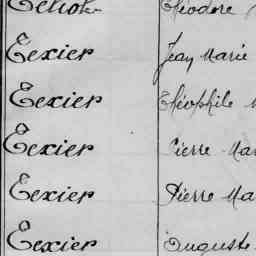 Théodore
Texier Jean Marie
Texier Théophile
Texier Pierre Mar
Texier Pierre Ma
Texier Auguste